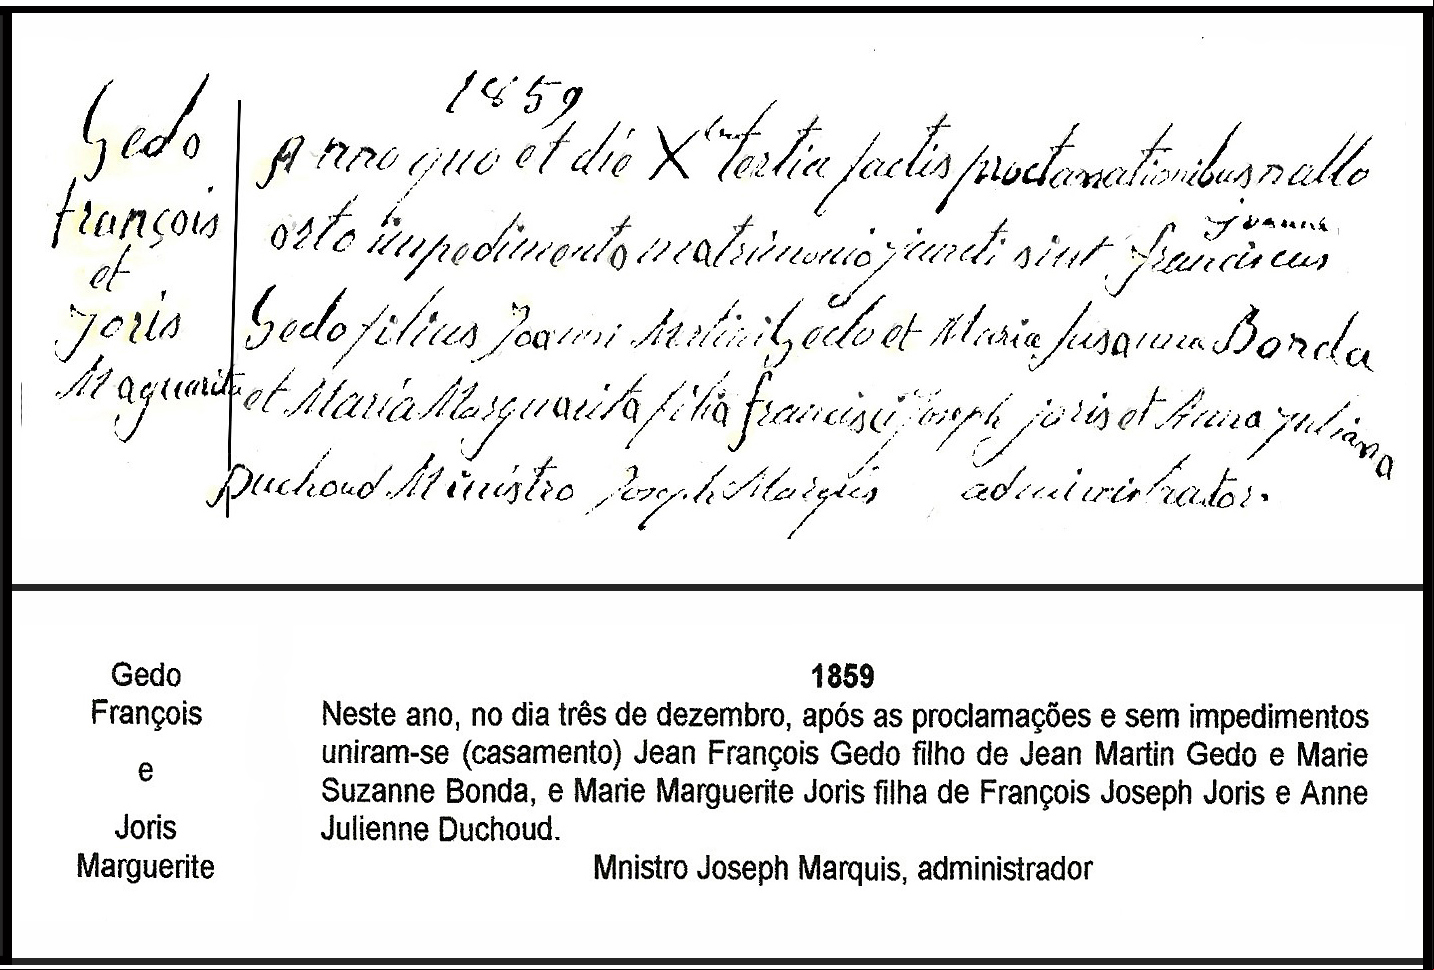 Gedo
François
et
Joris
Maguarita
1859
Anno quo et die Xbri tertia factis proclamationibus nullo
orto impedimento matrimonio juncti sint Joannes franciscus
Gedo filius Joanni Martini Gedo et Maria Susanna Bonda
et Maria Marguarita filia francisci Joseph joris et Anna Juliana
Duchoud Ministro Joseph Marquis administrator.
Gedo
François
e
Joris
Marguerite
1859
Neste ano, no dia três de dezembro, após as proclamações e sem impedimentos
uniram-se (casamento) Jean François Gedo filho de Jean Martin Gedo e Marie
Suzanne Bonda, e Marie Marguerite Joris filha de François Joseph Joris e Anne
Julienne Duchoud.
Mnistro Joseph Marquis, administrador